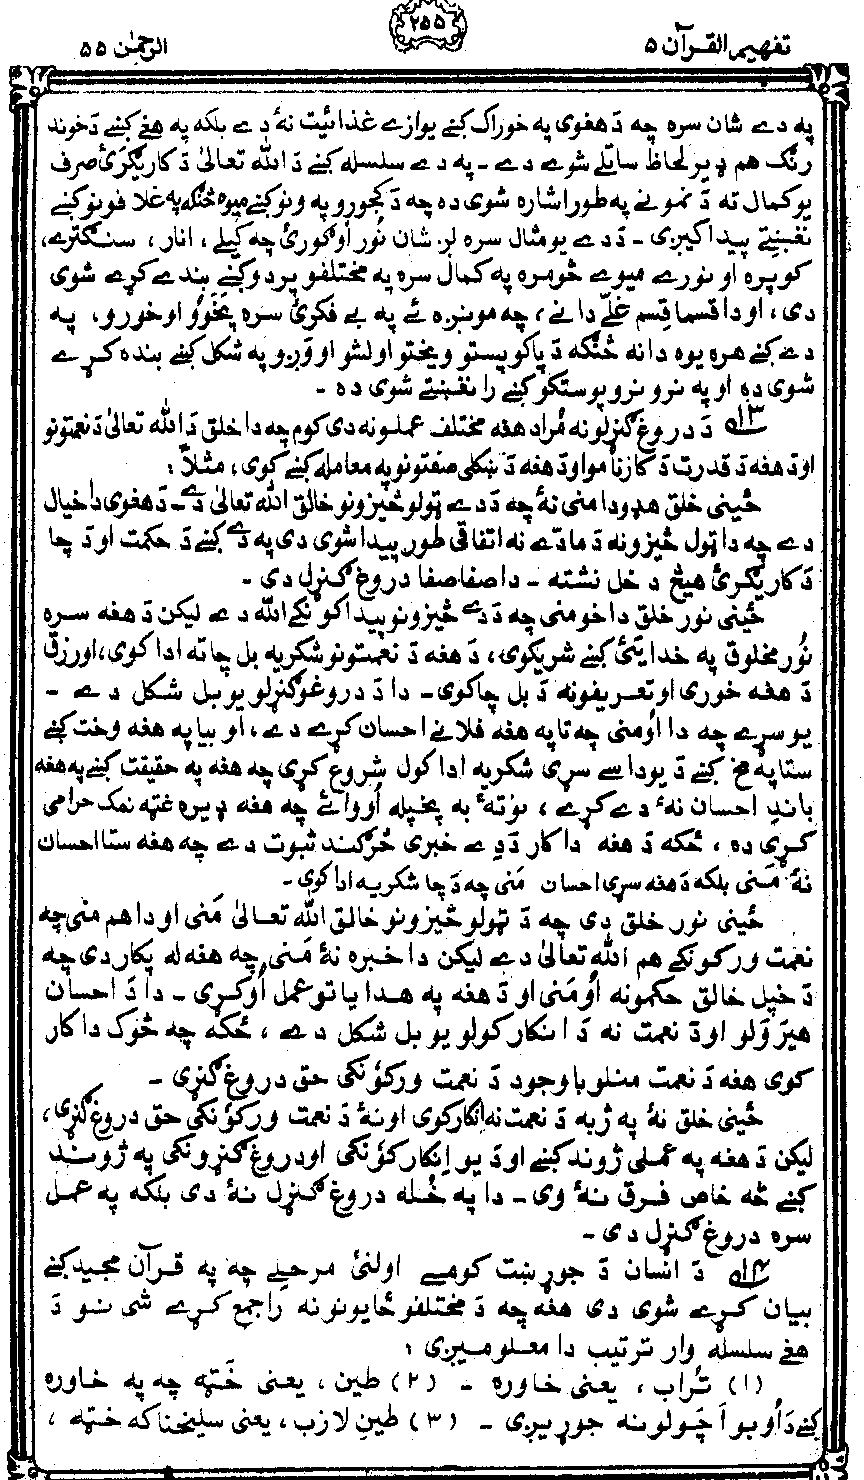 تفهیم القرآن ۵
۲۵۵
الرحمٰن ۵۵
په دے شان سره چه دَ هغوی په خوراک کښے یوازے غذائیت نهٔ دے بلکه په هغے کښے دَ خوند
رنګ هم ډیر لحاظ ساتلے شوے دے ـ په دے سلسله کښے دَ الله تعالیٰ دَ کاریګرۍ صرف
یو کمال ته دَ نمونے په طور اشاره شوی ده چه دَ کجورو په ونو کښے میوه څنګه په غلافونو کښے
نغښتے پیدا کیږی ـ دَ دے یو مثال سره لږ شان نُور اُوګورئ چه کیلے، انار، سنګترے،
کوپره او نورے میوے څومره په کمال سره په مختلفو پردو کښے بندے کړے شوی
دی، او دا قسما قِسم غلّے دانے، چه مونږه ئے په بے فکرئ سره پخَوُو او خورو، په
دے کښے هره یوه دانه څنګه دَ پاکو پستو ویختو او لشو او وَږو په شکل کښے بنده کړے
شوی ده او په نرو نرو پوستکو کښے را نغښتے شوی ده ـ
۱۳ دَ دروغ ګنړلو نه مُراد هغه مختلف عملونه دی کوم چه دا خلق دَ الله تعالیٰ دَ نعمتونو
او دَ هغه دَ قدرت دَ کارنامو او دَ هغه دَ ښکلی صفتونو په معامله کښے کوی، مثلاً:
ځینی خلق هډو دا منی نهٔ چه دَ دے ټولو څیزونو خالق الله تعالیٰ دے ـ دَ هغوی دا خیال
دے چه دا ټول څیزونه دَ مادّے نه اتفاقی طور پیدا شوی دی په دے کښے دَ حکمت او دَ چا
دَ کاریګرئ هیڅ دخل نشته ـ دا صفا صفا دروغ ګنړل دی ـ
ځینی نور خلق دا خو منی چه دَ دے څیزونو پیدا کونکے الله دے لیکن دَ هغه سره
نُور مخلوق په خدایئی کښے شریکوی، دَ هغه دَ نعمتونو شکریه بل چا ته ادا کوی، او رزق
دَ هغه خوری او تعریفونه دَ بل چا کوی ـ دا دَ دروغو ګنړلو یو بل شکل دے ـ
یو سړے چه دا اُومنی چه تا په هغه فلانے احسان کړے دے، او بیا په هغه وخت کښے
ستا په مخ کښے دَ یو داسے سړی شکریه ادا کول شروع کړی چه هغه په حقیقت کښے په هغه
باندِ احسان نهٔ دے کړے، نو تهٔ به پخپله اُووائے چه هغه ډیره غټه نمک حرامی
کړی ده، ځکه دَ هغه دا کار دَ دے خبری څرګند ثبوت دے چه هغه ستا احسان
نهٔ مَنی بلکه دَ هغه سړی احسان مَنی چه دَ چا شکریه ادا کوی ـ
ځینی نور خلق دی چه دَ ټولو څیزونو خالق الله تعالیٰ مَنی او دا هم منی چه
نعمت ورکونکے هم الله تعالیٰ دے لیکن دا خبره نهٔ مَنی چه هغه له پکار دی چه
دَ خپل خالق حکمونه اُومَنی او دَ هغه په هدایاتو عمل اُوکړی ـ دا دَ احسان
هیرَوَلو او دَ نعمت نه دَ انکار کولو یو بل شکل دے، ځکه چه څوک دا کار
کوی هغه دَ نعمت منلو باوجود دَ نعمت ورکوُنکی حق دروغ ګنړی ـ
ځینی خلق نهٔ په ژبه دَ نعمت نه اِنکار کوی او نهٔ دَ نعمت ورکوُنکی حق دروغ ګنړی،
لیکن دَ هغه په عملی ژوند کښے او دَ یو اِنکار کوُنکی او دروغ ګنړونکی په ژوند
کښے څه خاص فرق نهٔ وی ـ دا په خُله دروغ ګنړل نهٔ دی بلکه په عمل
سره دروغ ګنړل دی ـ
۱۴ دَ انسان دَ جوړښت کومے اولنئ مرحلے چه په قرآن مجید کښے
بیان کړے شوی دی هغه چه دَ مختلفو ځایونو نه راجمع کړے شی نو دَ
هغے سلسله وار ترتیب دا معلومیږی:
(۱) تُراب، یعنی خاوره ـ (۲) طین، یعنی خَټه چه په خاوره
کښے دَ اُوبو اَچولو نه جوړیږی ـ (۳) طینِ لازب، یعنی سلیخناکه خټه،